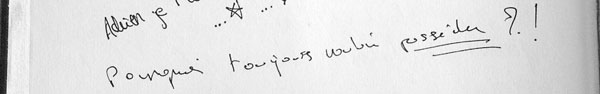 Adrien je
... ☆ ...
Pourquoi toujours vouloir posséder ?!